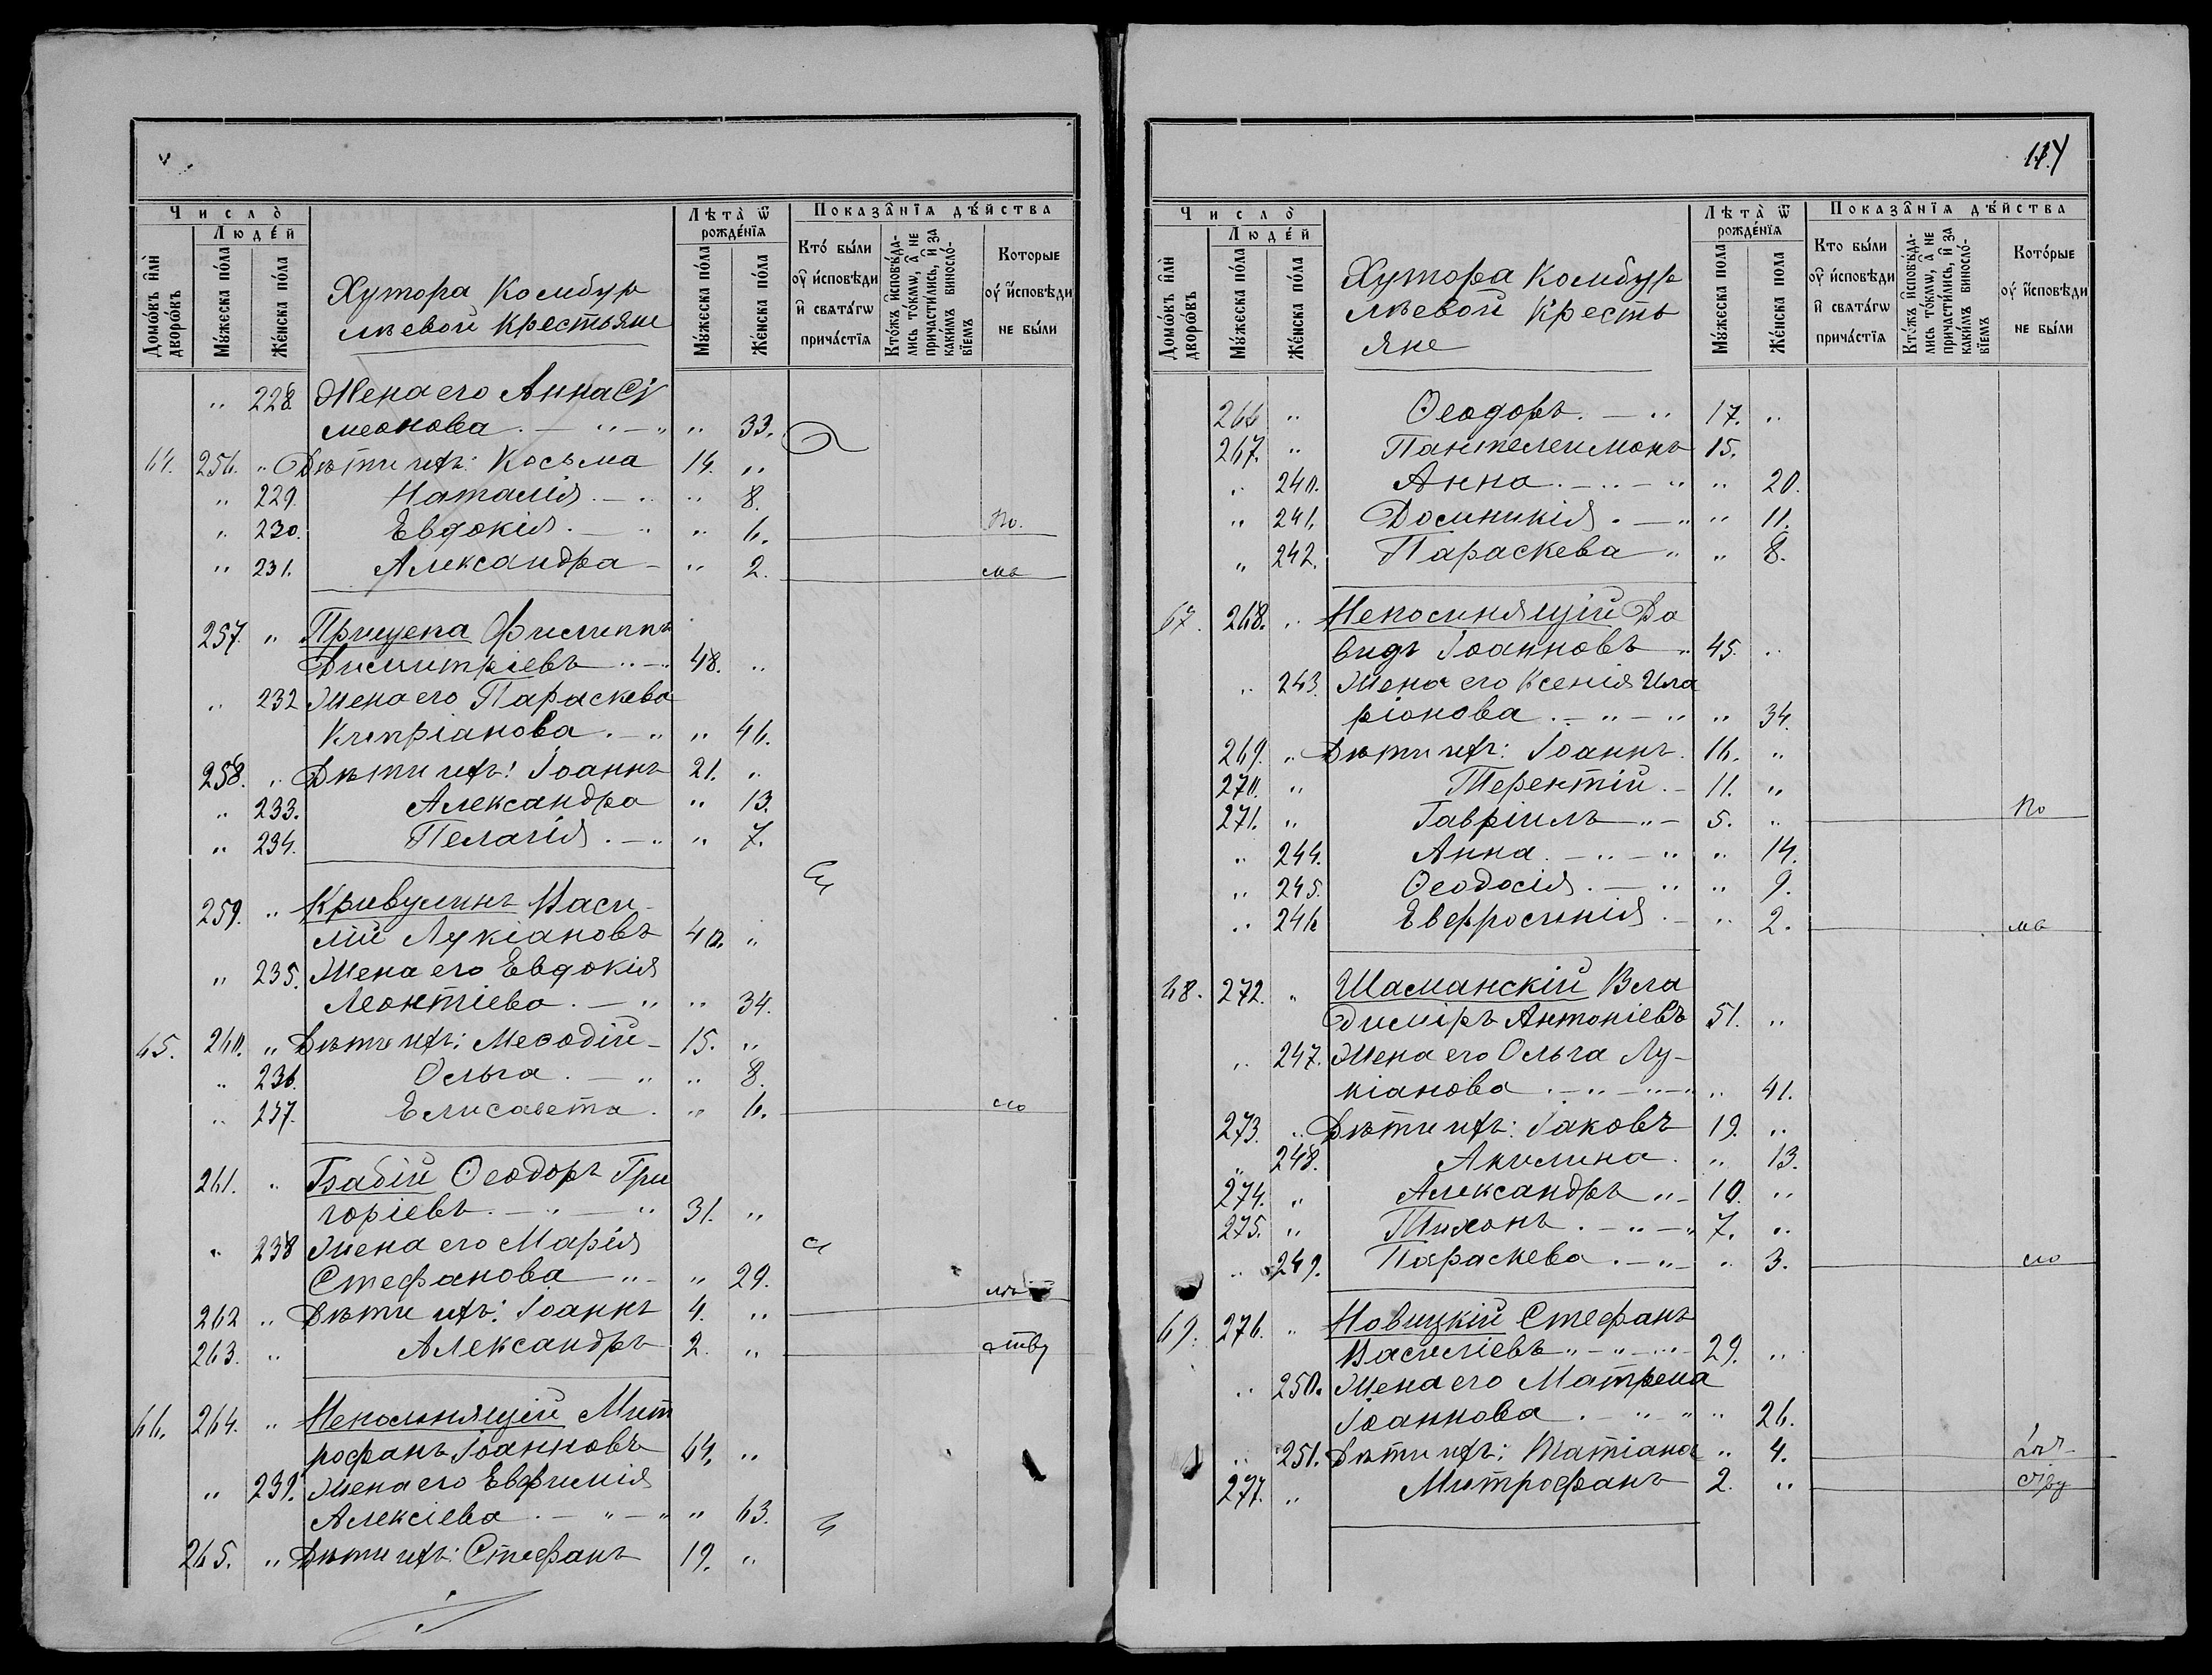 Число̀
Домо́въ и҆лѝ дворо́въ
Люде́й
Мꙋ́жеска по́ла
Же́нска по́ла
Хутора Комбур
лѣевой крестьяне
Лѣта̀ ѿ рожде́нїѧ
Мꙋ́жеска по́ла
Же́нска по́ла
Показа̂нїѧ дѣ́йства
Кто́ бы́ли оу҆ и҆сповѣ́ди и҆ свѧта́гѡ прича́стїѧ
Кто́жъ и҆сповѣ́да-
лись то́кмѡ, а҆ не
причасти́лись, и҆ за
каки́мъ виносло́-
вїемъ
Которые оу҆ и҆сповѣ́ди не бы́ли
„ 228. Жена его Анна Си
меонова . — „ — „ „ 33.
64. 256. „ Дѣти ихъ: Косьма 14. „
„ 229. Наталія . — „ „ 8.
„ 230. Евдокія . — „ „ 6. По.
„ 231. Александра — „ 2. ма
257. „ Прищепа Филиппъ
Димитріевъ „ — „ 48. „
„ 232 Жена его Параскева
Кипріанова . — „ „ 46.
258. „ Дѣти ихъ: Іоаннъ 21. „
„ 233. Александра „ 13.
„ 234. Пелагія . — „ „ 7.
259. „ Кривулинъ Васи-
лій Лукіановъ 40. „
„ 235. Жена его Евдокія
Леонтіева . — „ „ 34.
65. 260. „ Дѣти ихъ: Меѳодій — 15. „
„ 236. Ольга . — „ „ 8.
„ 237. Елисавета . „ 6. ло
261. „ Бабій Ѳеодоръ Гри
горіевъ . — „ — „ 31. „
„ 238 Жена его Марія
Стефанова „ — „ 29.
262 „ Дѣти ихъ: Іоаннъ 4. „
263. „ Александръ 2. „ ству
66. 264. „ Непомнящій Мит
рофанъ Іоанновъ 64. „
„ 239. Жена его Евфимія
Алексіева . — „ — „ „ 63.
265. „ Дѣти ихъ: Стефанъ 19. „
Число̀
Домо́въ и҆лѝ дворо́въ
Люде́й
Мꙋ́жеска по́ла
Же́нска по́ла
Хутора Комбур
лѣевой Кресть
яне
Лѣта̀ ѿ рожде́нїѧ
Мꙋ́жеска пола
Же́нска пола
Показа̂нїѧ дѣ́йства
Кто бы́ли оу҆ и҆сповѣ́ди и҆ свѧта́гѡ прича́стїѧ
Кто́жъ и҆сповѣ́да-
лись то́кмѡ, а҆ не
причасти́лись, и҆ за
каки́мъ виносло́-
вїемъ
Кото́рые оу҆ и҆сповѣ́ди не бы́ли
266 „ Ѳеодоръ . — „ 17. „
267. „ Пантелеимонъ 15.
„ 240. Анна . — „ — „ „ 20.
„ 241. Домникія . — „ „ 11.
„ 242. Параскева „ „ 8.
67. 268. „ Непомнящій Да
видъ Іоанновъ „ 45. „
„ 243. Жена его Ксенія Ила
ріонова . — „ — „ „ 34.
269. „ Дѣти ихъ: Іоаннъ . 16. „
270. „ Терентій . — 11. „
271. „ Гавріилъ „ — 5. „ По
„ 244. Анна . — „ — „ „ 14.
„ 245. Ѳеодосія . — „ „ 9.
„ 246 Евфросинія . — „ 2. ма
68. 272. „ Шаманскій Вла
диміръ Антоніевъ 51. „
„ 247. Жена его Ольга Лу-
кіанова . — „ — „ — „ „ 41.
273. „ Дѣти ихъ: Іаковъ 19. „
„ 248. Акилина . „ 13.
274. „ Александръ „ — 10. „
275. „ Тихонъ . — „ — „ 7. „
„ 249. Параскева . — „ — „ 3. ло
69. 276. „ Новицкій Стефанъ
Василіевъ „ — „ — „ 29. „
„ 250. Жена его Матрена
Іоаннова . — „ — „ „ 26.
„ 251. Дѣти ихъ: Татіана „ 4.
277. „ Митрофанъ 2. „ ству